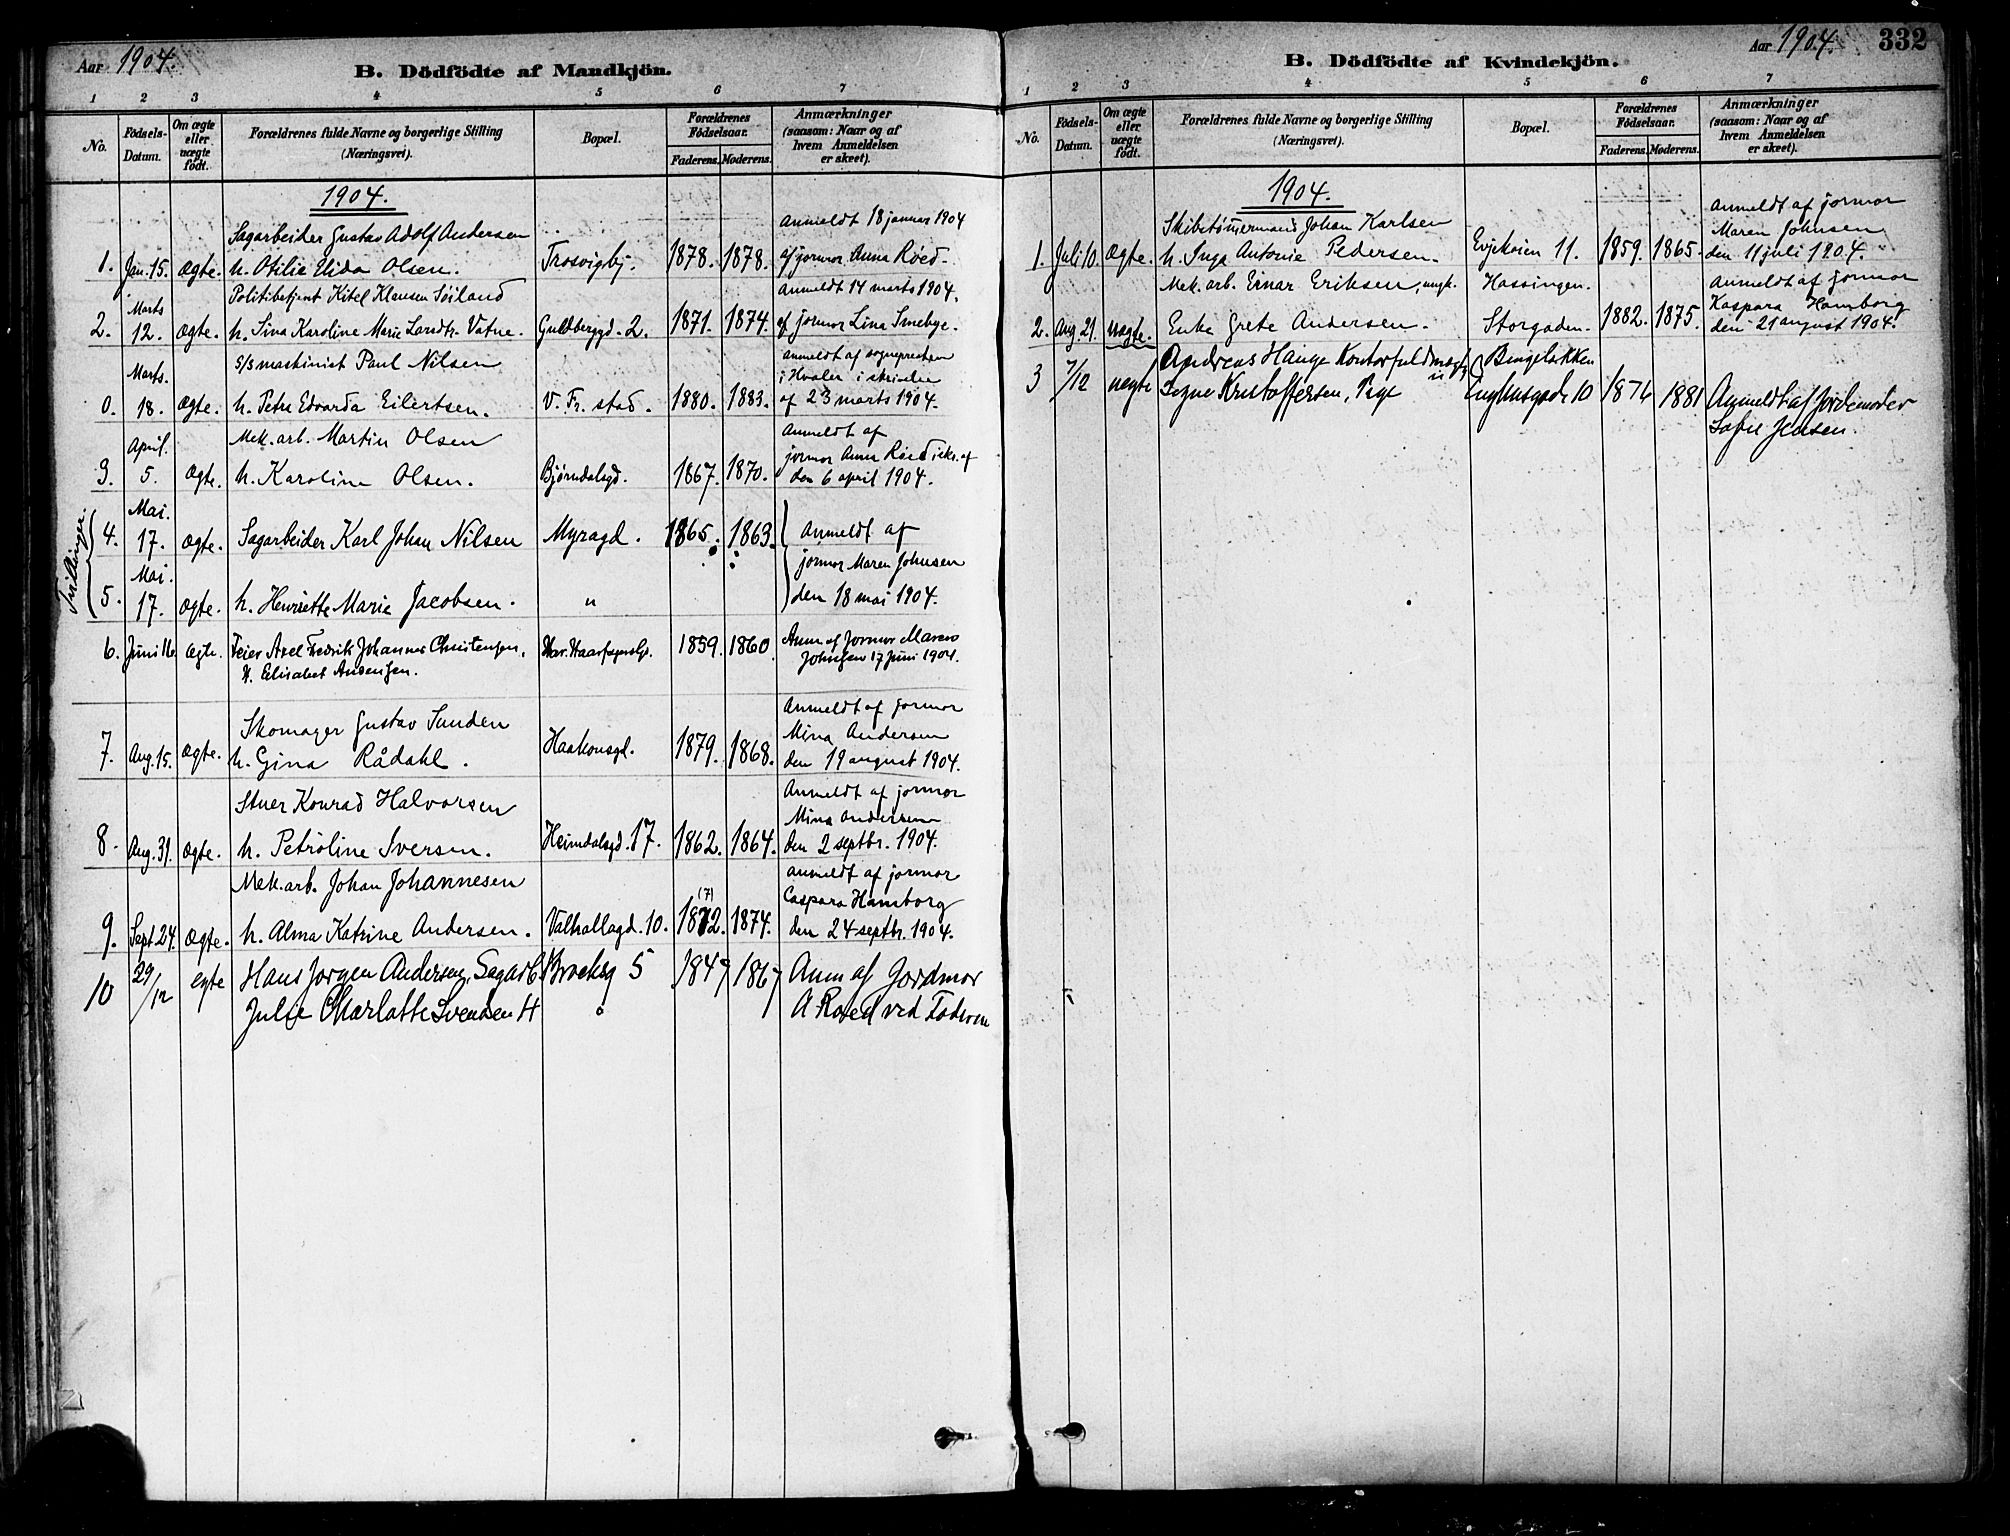 Aar 1904.
B. Dödfödte af Mandkjön.
1 2 3 4 5 6 7
No.
Födsels-Datum.
Om ægte eller uægte födt.
Forældrenes fulde Navne og borgerlige Stilling (Næringsvei).
Bopæl.
Forældrenes Födselsaar.
Faderens. Moderens.
Anmærkninger (saasom: Naar og af hvem Anmeldelsen er skeet).
1904.
Sagarbeider Gustav Adolf Andersen
anmeldt 18 januar 1904
1. Jan. 15. ægte. h. Otilie Elida Olsen. Trosvigbj. 1878. 1878. af jormor Anna Röed.
Politibetjent Kitel Klausen Söiland
anmeldt 14 marts 1904.
2. Marts 12. ægte. h. Sina Karoline Marie Larsdtr. Vatne. Guldbergd. 2. 1871. 1874. af jormor Lina Smebye.
S/S maskinist Paul Nilsen
anmeldt af sognepresten
i Hvaler i skrivelse
0. Marts. 18. ægte. h. Petra Edvarda Eilertsen. V. Fr. stad. 1880. 1883. af 23 marts 1904.
Mek. arb. Martin Olsen
Anmeldt af
jormor Anna Röed
3. April. 5. ægte. h. Karoline Olsen. Bjørndalsgd. 1867. 1870. den 6 april 1904.
Tvillinger.
4. Mai. 17. ægte. Sagarbeider Karl Johan Nilsen Myragd. 1865. 1863. anmeldt af
jormor Maren Johnsen
5. Mai. 17. ægte. h. Henriette Marie Jacobsen. " den 18 mai 1904.
6. Juni 16. ægte. Feier Axel Fredrik Johannes Christensen, Har. Haarfagersgd. 1859. 1860. Anm af Jormor Maren
H. Elisabet Andersen. Johnsen 17 Juni 1904.
Skomager Gustav Sunden
Anmeldt af jormor
Mina Andersen
7. Aug. 15. ægte. h. Gina Rådahl. Haakonsgd. 1879. 1868. den 19 august 1904.
Stuer Konrad Halvorsen
Anmeldt af jormor
Mina Andersen
8. Aug. 31. ægte. h. Petroline Iversen. Heimdalsgd. 17. 1862. 1864. den 2 septbr. 1904.
Mek. arb. Johan Johannesen
anmeldt af jormor
Caspara Hamborg
9. Sept 24. ægte. h. Alma Katrine Andersen. Valhallagd. 10. 1872. (7) 1874. den 24 septbr. 1904.
10 29/12 egte Hans Jorgen Andersen, Sagarb. Brocksg 5 1847 1867 Anm af Jordmor
Julie Charlotte Svendsen H " A Roed ved Faderen
Aar 1904. 332
B. Dödfödte af Kvindekjön.
1 2 3 4 5 6 7
No.
Födsels-Datum.
Om ægte eller uægte födt.
Forældrenes fulde Navne og borgerlige Stilling (Næringsvei).
Bopæl.
Forældrenes Födselsaar.
Faderens. Moderens.
Anmærkninger (saasom: Naar og af hvem Anmeldelsen er skeet).
1904.
Skibstømmermand Johan Karlsen
Anmeldt af jormor
Maren Johnsen
1. Juli 10. ægte. h. Inga Antonie Pedersen. Evjekaien 11. 1859. 1865. den 11 juli 1904.
Mek. arb. Einar Eriksen, ungk. Hassingen.
Anmeldt af jormor
Kaspara Hamborg
2. Aug 21. uægte. Enke Grete Andersen. Storgaden. 1882. 1875. den 21 august 1904.
3 7/12 uegte Andreas Hauge Kontorfuldmægt. u
Signe Kristoffersen, Pige 10 1876 1881 Anmeldt af Jordemoder
Sofie Jensen.